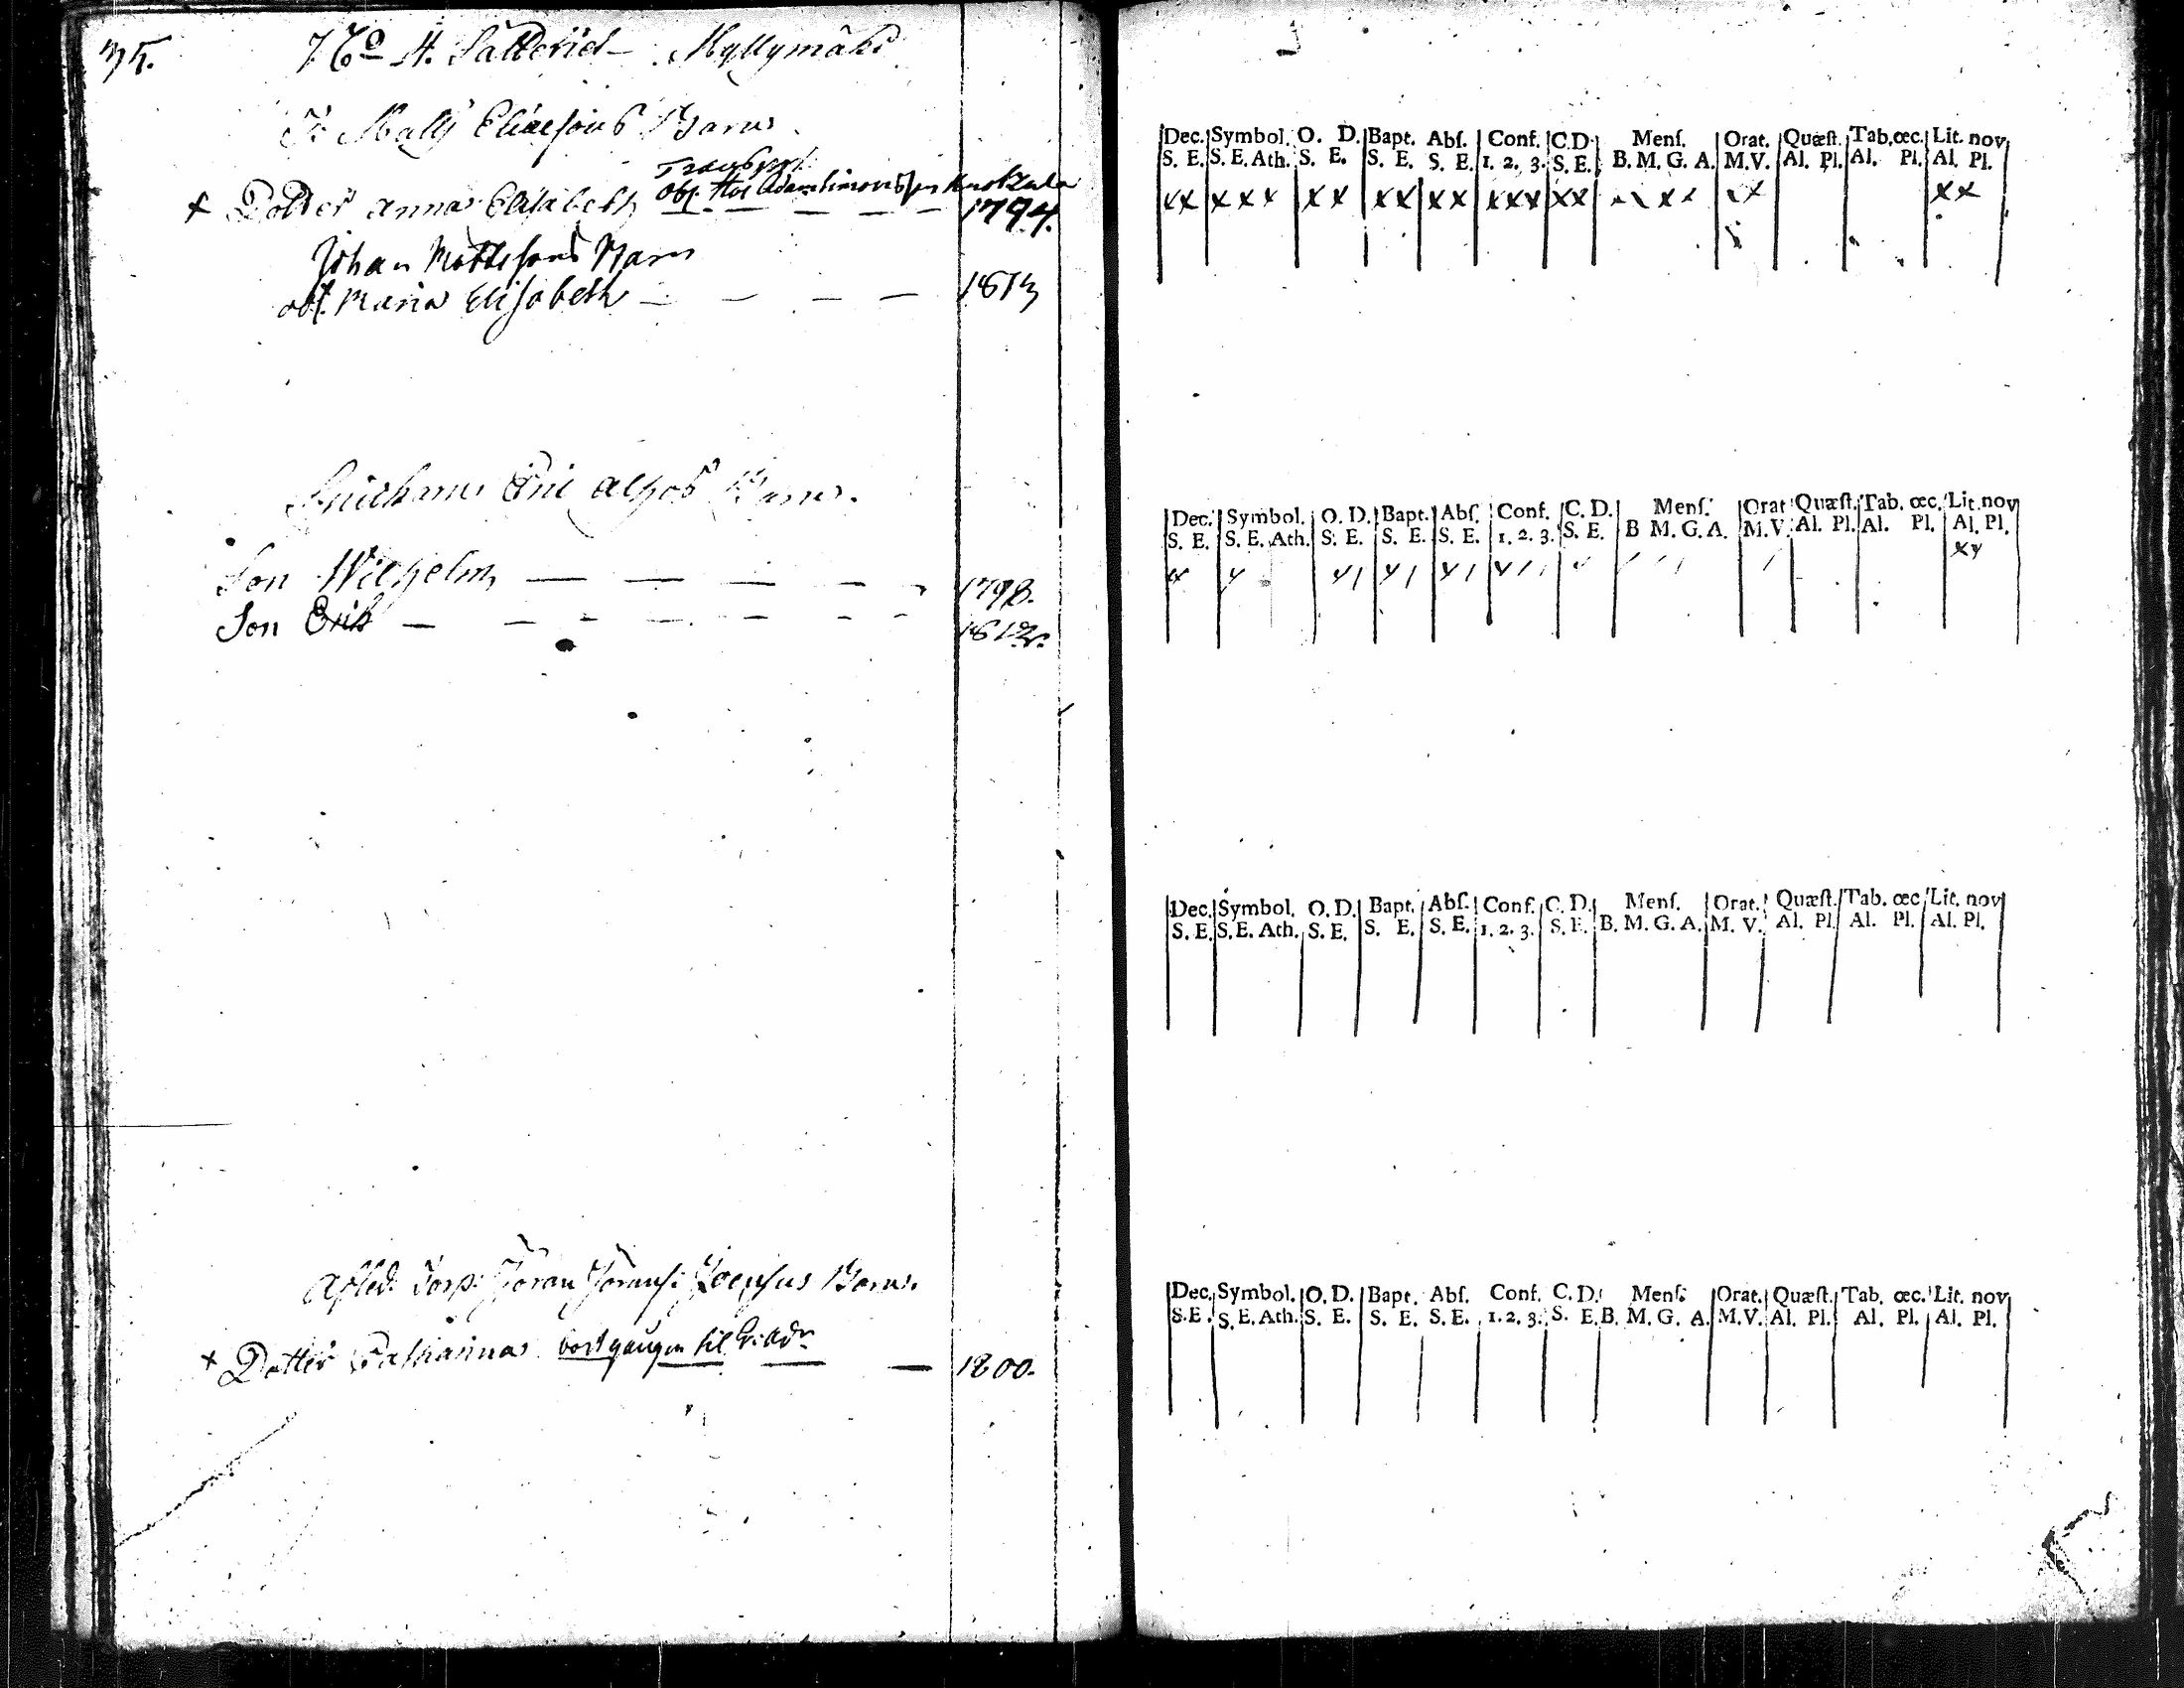 35.
No 4. Säteriet Myllymäki
Matts Eliaesons Barn
Transport
obs. Hos Adam Simonsson
+ Dotter Anna Elisabeth 1794.
Johan Mattssons Barn
obs. Maria Elisabeth — — — — 1813
Barn.
Son Wilhelm — — — — — 1798.
Son Erik — — — — — — — 1812.
Afled. Torp. Jöran Jöransf. Barn.
+ Dotter Catharina bortgången til — 1800.
Dec. Symbol. O. D. Bapt. Abſ. Conf. C.D. Menſ. Orat. Quæſt. Tab. œc. Lit. nov
S. E. S. E. Ath. S. E. S. E. S. E. 1. 2. 3. S. E. B. M. G. A. M. V. Al. Pl. Al. Pl. Al. Pl.
xx xxx xx xx xx xxx xx xx xx
Dec. Symbol. O. D. Bapt. Abſ. Conf. C. D. Menſ. Orat Quæſt. Tab. œc. Lit. nov
S. E. S. E. Ath. S. E. S. E. S. E. 1. 2. 3. S. E. B M. G. A. M.V. Al. Pl. Al. Pl. Al. Pl.
Dec. Symbol. O. D. Bapt. Abſ. Conf. C. D. Menſ. Orat. Quæſt. Tab. œc Lit. nov
S. E. S. E. Ath. S. E. S. E. S. E. 1. 2. 3. S. E. B. M. G. A. M. V. Al. Pl. Al. Pl. Al. Pl.
Dec. Symbol. O. D. Bapt. Abſ. Conf. C. D. Menſ. Orat. Quæſt. Tab. œc. Lit. nov
S. E. S. E. Ath. S. E. S. E. S. E. 1. 2. 3. S. E. B. M. G. A. M.V. Al. Pl. Al. Pl. Al. Pl.